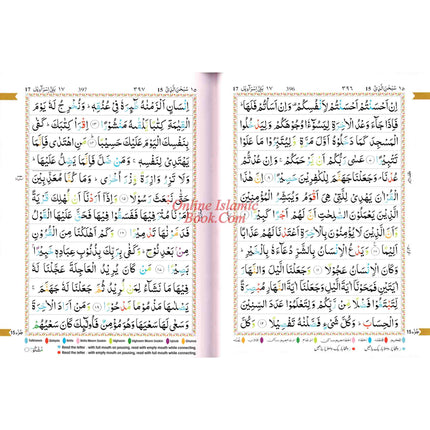 اِنْ اَحْسَنْتُمْ اَحْسَنْتُمْ لِاَنْفُسِكُمْ وَاِنْ اَسَاْتُمْ فَلَهَا
فَاِذَا جَآءَ وَعْدُ الْاٰخِرَةِ لِيَسُوْٓءٗا وُجُوْهَكُمْ وَلِيَدْخُلُوا
الْمَسْجِدَ كَمَا دَخَلُوْهُ اَوَّلَ مَرَّةٍ وَّلِيُتَبِّرُوْا مَا عَلَوْا
تَتْبِيْرًا عَسٰى رَبُّكُمْ اَنْ يَّرْحَمَكُمْ وَاِنْ عُدْتُّمْ
عُدْنَا وَجَعَلْنَا جَهَنَّمَ لِلْكٰفِرِيْنَ حَصِيْرًا اِنَّ هٰذَا
الْقُرْاٰنَ يَهْدِيْ لِلَّتِيْ هِيَ اَقْوَمُ وَيُبَشِّرُ الْمُؤْمِنِيْنَ
الَّذِيْنَ يَعْمَلُوْنَ الصّٰلِحٰتِ اَنَّ لَهُمْ اَجْرًا كَبِيْرًا
وَّاَنَّ الَّذِيْنَ لَا يُؤْمِنُوْنَ بِالْاٰخِرَةِ اَعْتَدْنَا لَهُمْ عَذَابًا
اَلِيْمًا وَيَدْعُ الْاِنْسَانُ بِالشَّرِّ دُعَآءَهٗ بِالْخَيْرِ
وَكَانَ الْاِنْسَانُ عَجُوْلًا وَجَعَلْنَا الَّيْلَ وَالنَّهَارَ
اٰيَتَيْنِ فَمَحَوْنَآ اٰيَةَ الَّيْلِ وَجَعَلْنَآ اٰيَةَ النَّهَارِ مُبْصِرَةً
لِّتَبْتَغُوْا فَضْلًا مِّنْ رَّبِّكُمْ وَلِتَعْلَمُوْا عَدَدَ السِّنِيْنَ
وَالْحِسَابَ وَكُلَّ شَيْءٍ فَصَّلْنٰهُ تَفْصِيْلًا وَكُلَّ
اِنْسَانٍ اَلْزَمْنٰهُ طٰٓئِرَهٗ فِيْ عُنُقِهٖ وَنُخْرِجُ لَهٗ يَوْمَ
الْقِيٰمَةِ كِتٰبًا يَّلْقٰىهُ مَنْشُوْرًا اِقْرَاْ كِتٰبَكَ كَفٰى
بِنَفْسِكَ الْيَوْمَ عَلَيْكَ حَسِيْبًا مَنِ اهْتَدٰى فَاِنَّمَا
يَهْتَدِيْ لِنَفْسِهٖ وَمَنْ ضَلَّ فَاِنَّمَا يَضِلُّ عَلَيْهَا
وَلَا تَزِرُ وَازِرَةٌ وِّزْرَ اُخْرٰى وَمَا كُنَّا مُعَذِّبِيْنَ
حَتّٰى نَبْعَثَ رَسُوْلًا وَاِذَآ اَرَدْنَآ اَنْ نُّهْلِكَ قَرْيَةً
اَمَرْنَا مُتْرَفِيْهَا فَفَسَقُوْا فِيْهَا فَحَقَّ عَلَيْهَا الْقَوْلُ
فَدَمَّرْنٰهَا تَدْمِيْرًا وَكَمْ اَهْلَكْنَا مِنَ الْقُرُوْنِ
مِنْ بَعْدِ نُوْحٍ وَكَفٰى بِرَبِّكَ بِذُنُوْبِ عِبَادِهٖ خَبِيْرًا
بَصِيْرًا مَنْ كَانَ يُرِيْدُ الْعَاجِلَةَ عَجَّلْنَا لَهٗ
فِيْهَا مَا نَشَآءُ لِمَنْ نُّرِيْدُ ثُمَّ جَعَلْنَا لَهٗ جَهَنَّمَ
يَصْلٰىهَا مَذْمُوْمًا مَّدْحُوْرًا وَمَنْ اَرَادَ الْاٰخِرَةَ
وَسَعٰى لَهَا سَعْيَهَا وَهُوَ مُؤْمِنٌ فَاُولٰٓئِكَ كَانَ سَعْيُهُمْ
Online Islamic
Book.Com